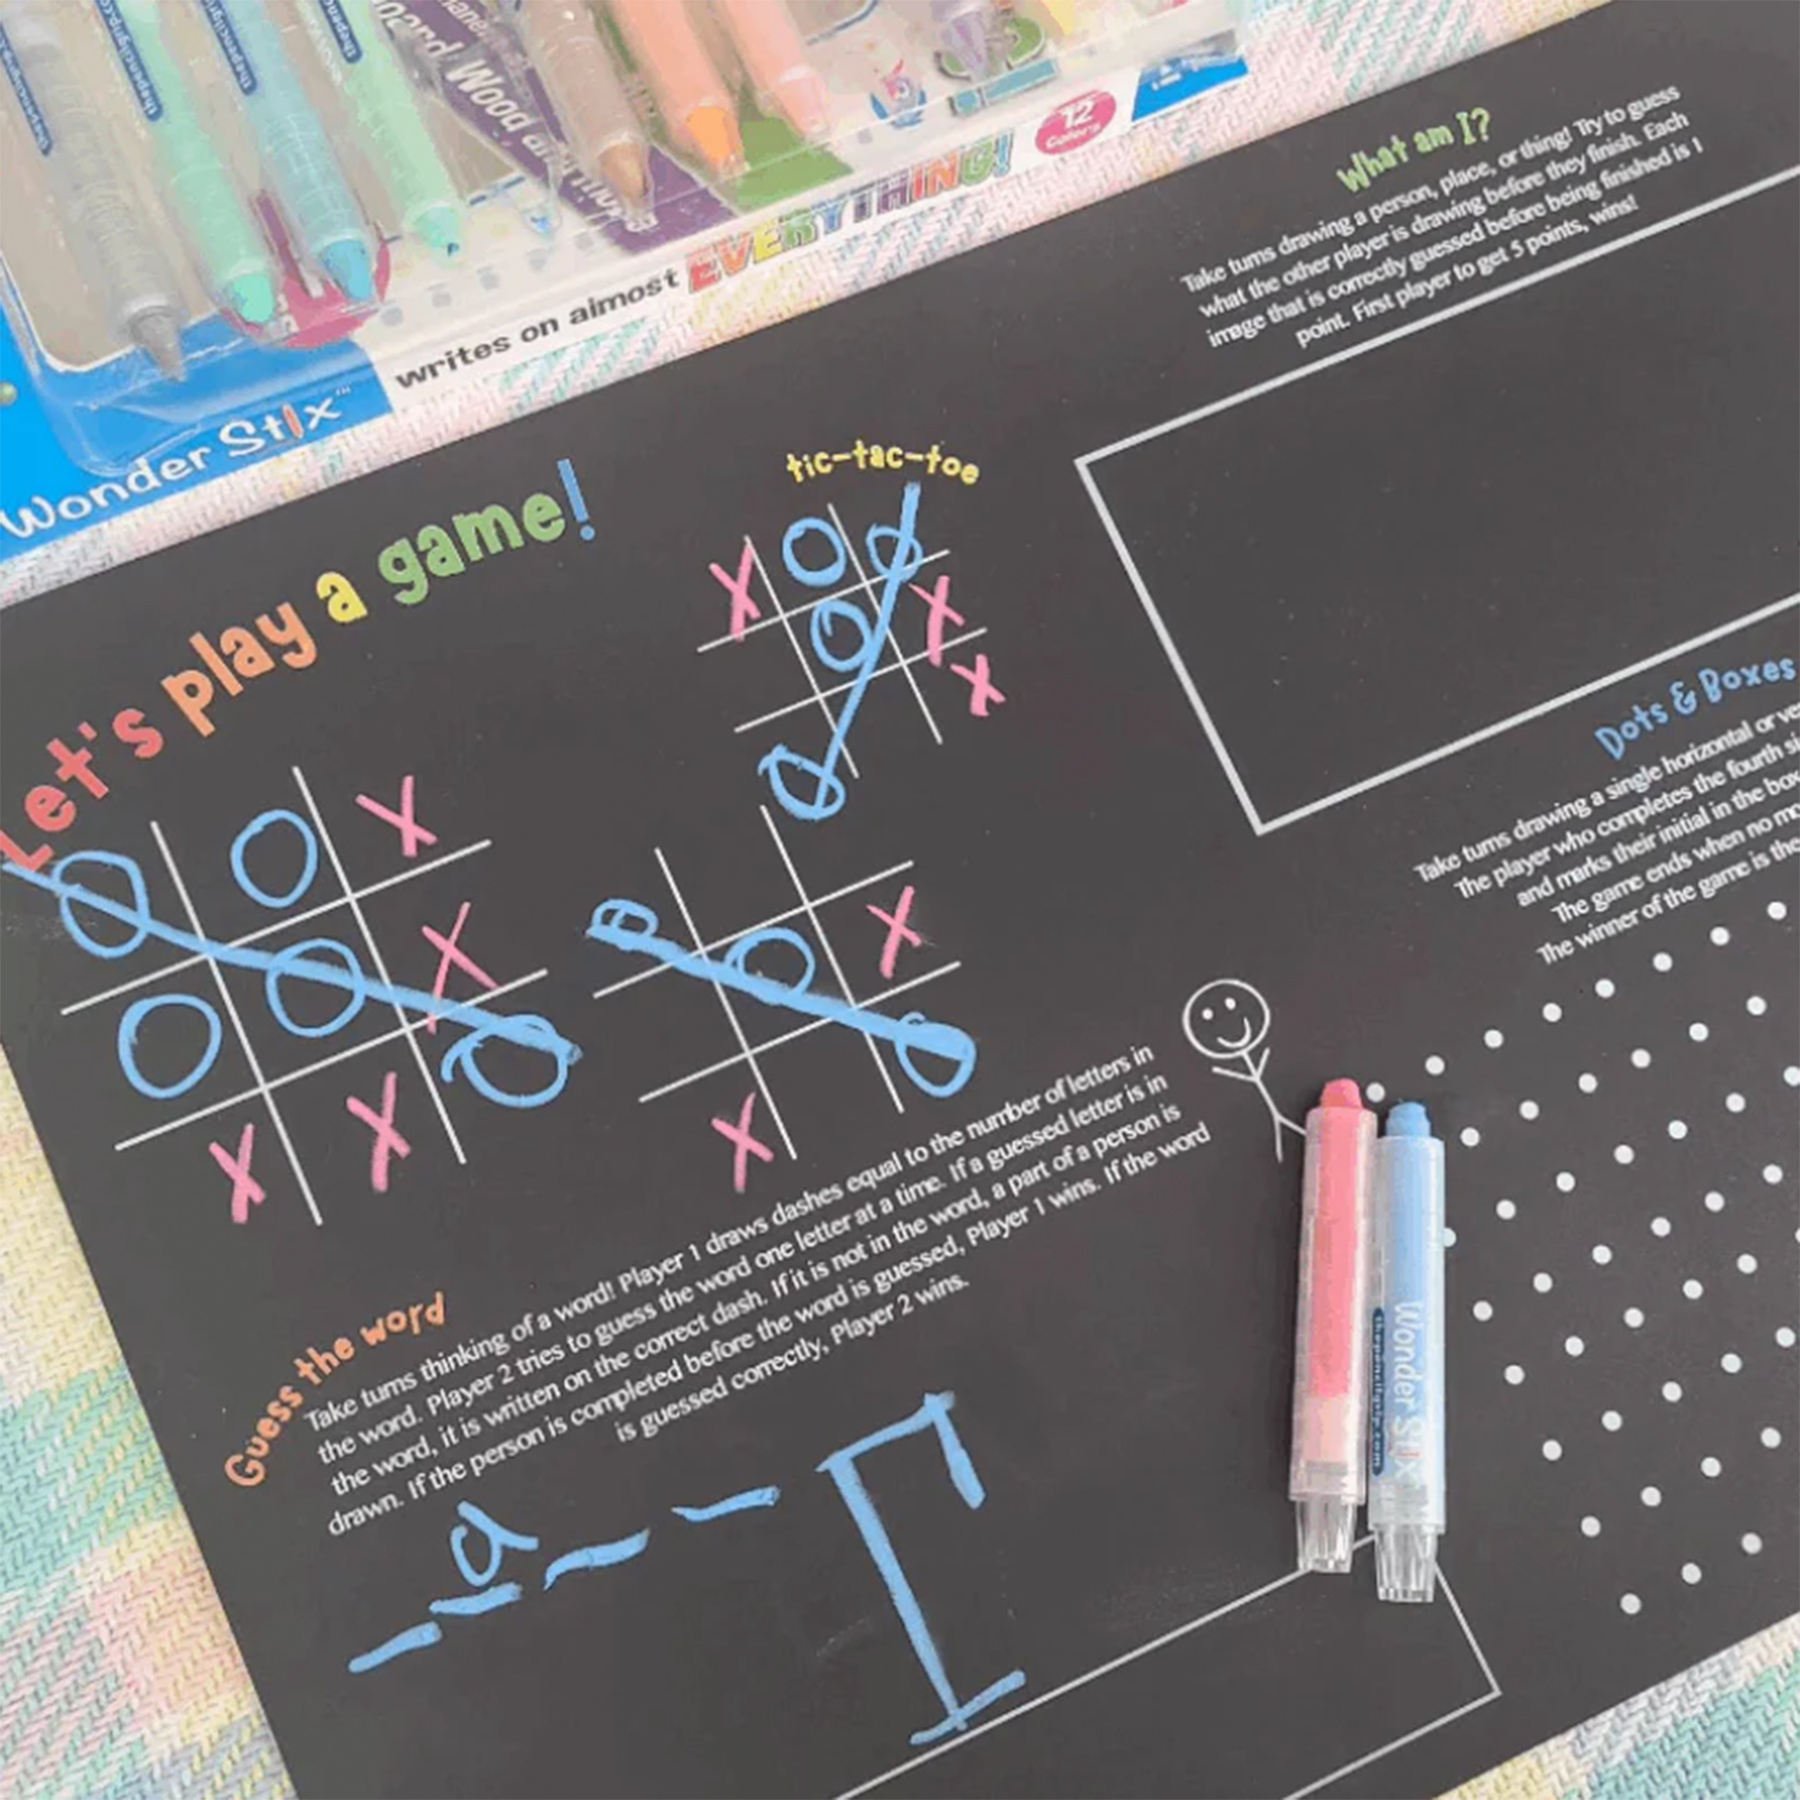 thepencilgrip.com
Board, Wood and
12
Colors
writes on almost EVERYTHING!
Wonder Stix™
Let's play a game!
tic-tac-toe
X O O
O X
X
O
O O X
O O X
X X O
O
O X
X O
What am I?
Take turns drawing a person, place, or thing! Try to guess
what the other player is drawing before they finish. Each
image that is correctly guessed before being finished is 1
point. First player to get 5 points, wins!
Dots & Boxes
Take turns drawing a single horizontal or
The player who completes the fourth
and marks their initial in the
The game ends when no
The winner of the game is the
Guess the word
Take turns thinking of a word! Player 1 draws dashes equal to the number of letters in
the word. Player 2 tries to guess the word one letter at a time. If a guessed letter is in
the word, it is written on the correct dash. If it is not in the word, a part of a person is
drawn. If the person is completed before the word is guessed, Player 1 wins. If the word
is guessed correctly, Player 2 wins.
a
Wonder Stix
thepencilgrip.com